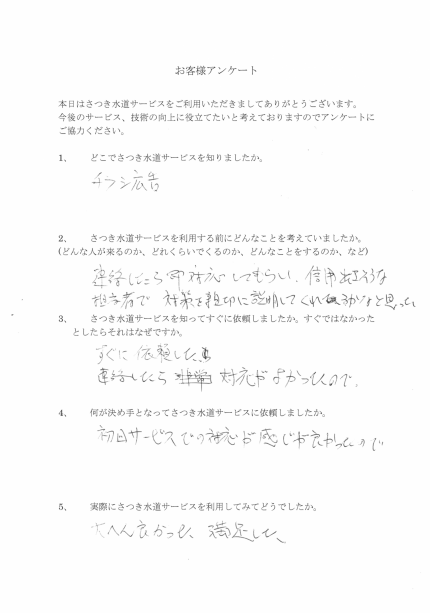 お客様アンケート
本日はさつき水道サービスをご利用いただきましてありがとうございます。
今後のサービス、技術の向上に役立てたいと考えておりますのでアンケートに
ご協力ください。
1、 どこでさつき水道サービスを知りましたか。
チラシ広告
2、 さつき水道サービスを利用する前にどんなことを考えていましたか。
(どんな人が来るのか、どれくらいでくるのか、どんなことをするのか、など)
連絡したら即対応してもらい、信用出来そうな
担当者で 対策を親切に説明してくれるかなと思った
3、 さつき水道サービスを知ってすぐに依頼しましたか。すぐではなかった
としたらそれはなぜですか。
すぐに依頼した
連絡したら 対応がよかったので。
4、 何が決め手となってさつき水道サービスに依頼しましたか。
初日サービスでの対応が感じが良かったので
5、 実際にさつき水道サービスを利用してみてどうでしたか。
大へん良かった、満足した、